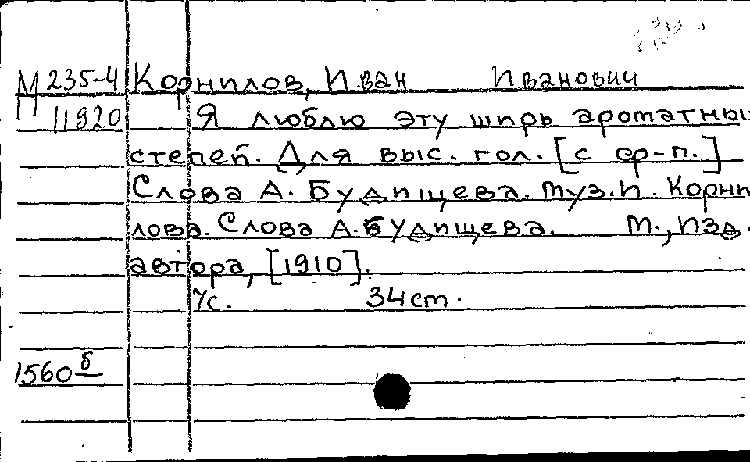 М 235-4 Корнилов, Иван Иванович
П 11820 Я люблю эту ширь ароматных
степей. Для выс. гол. [с ф-п.]
Слова А. Будищева. Муз. И. Корни
лова. Слова А. Будищева. М., Изд.
автора, [1910].
7с. 34 ст.
1560 б